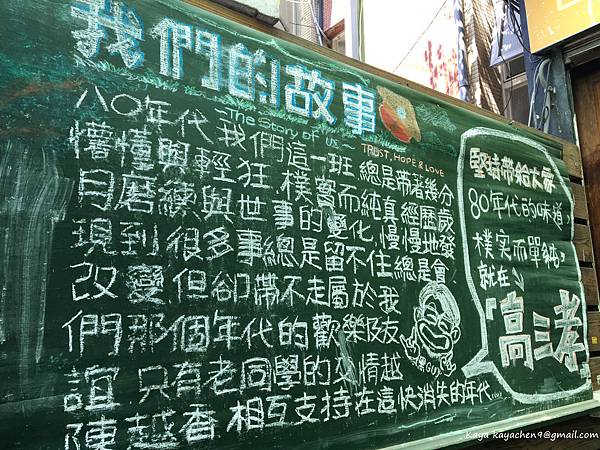 我們的故事
~The Story of us~
TRUST, HOPE & LOVE
八○年代我們這一班總是帶著幾分
懵懂與輕狂樸實而純真,經歷歲
月磨練與世事的變化,慢慢地發
現到很多事總是留不住總是會
改變,但卻帶不走屬於我
們那個年代的歡樂及友
誼只有老同學的交情越
陳越香相互支持在這快消失的年代.
堅持帶給大家
80年代的味道,
樸實而單純,
就在
「高三孝」
Kaya kayachen9@gmail.com